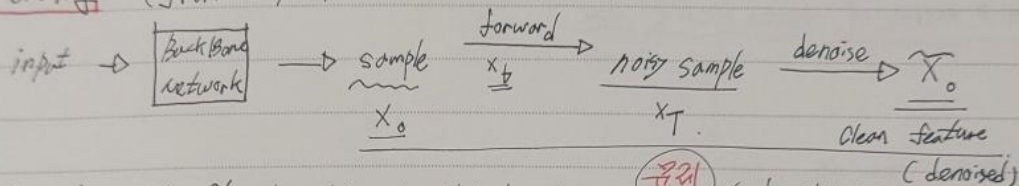 input → BackBone network → sample forward → noisy sample denoise → x̃₀
X₀ x_t x_T clean feature
(denoised)